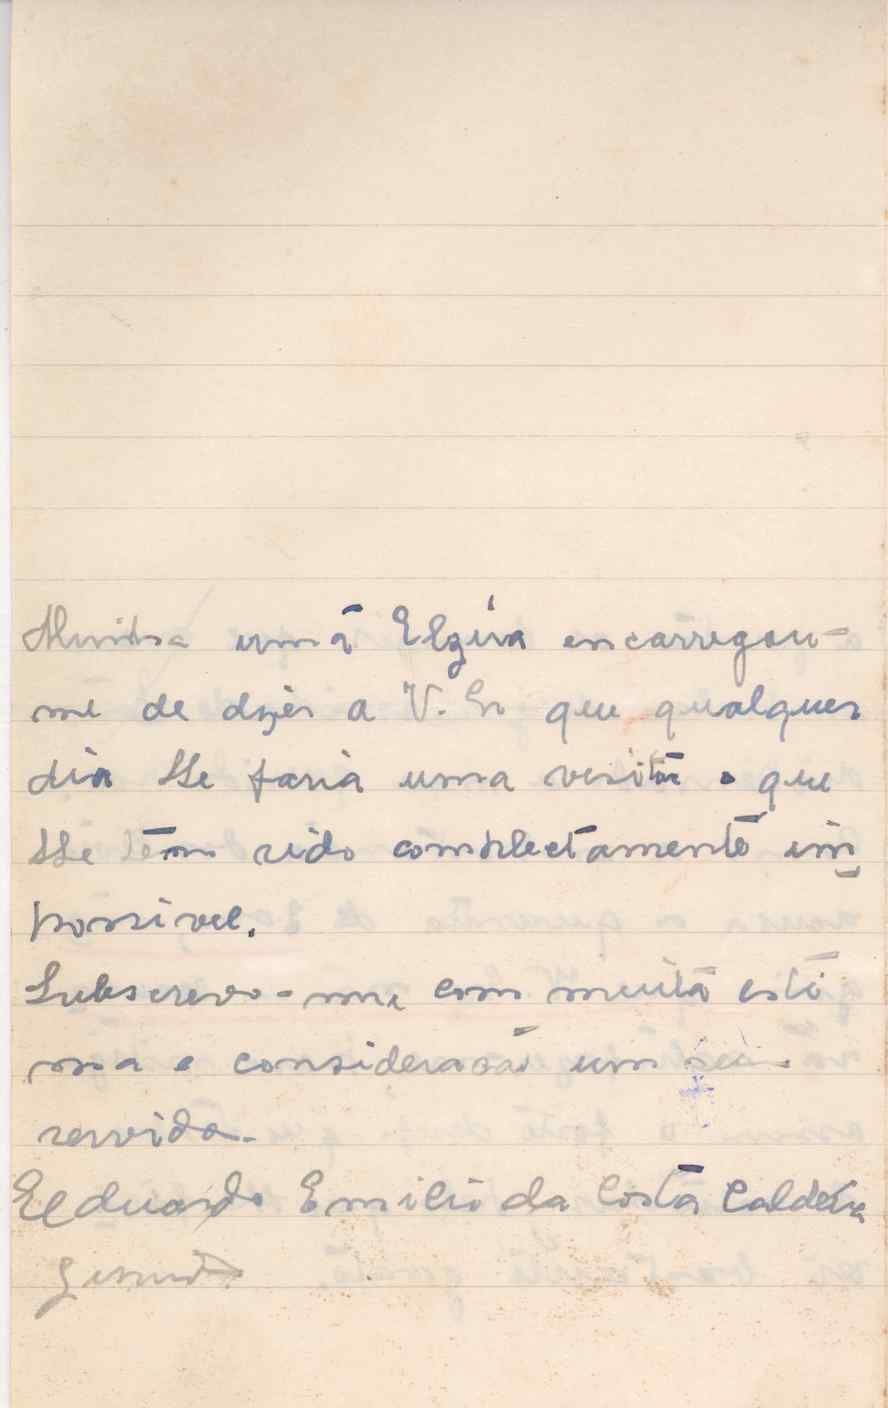 Minha irmã Elzira encarregou-
me de dizer a V. Ex que qualquer
dia lhe faria uma visita o que
lhe têm sido complectamente im
possivel.
Subscrevo-me com muita esti
ma e consideração um seu
servido.
Eduardo Emilio da Costa Caldeira